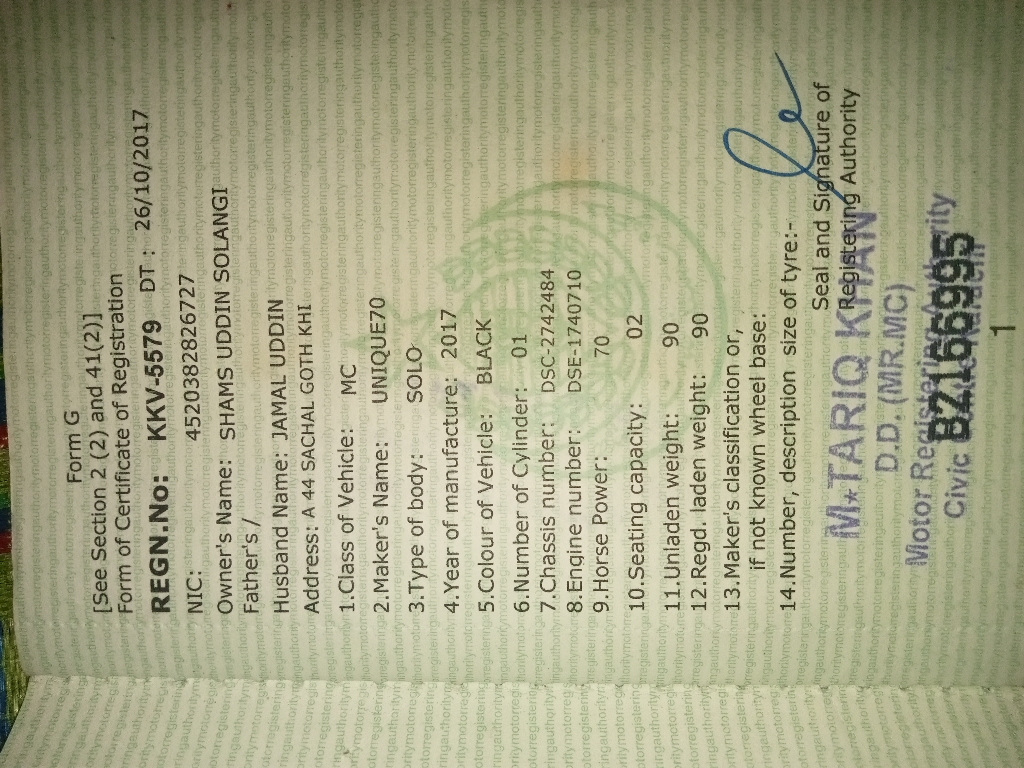 Form G
[See Section 2 (2) and 41(2)]
Form of Certificate of Registration
REGN.No: KKV-5579 DT : 26/10/2017
NIC: 4520382826727
Owner's Name: SHAMS UDDIN SOLANGI
Father's /
Husband Name: JAMAL UDDIN
Address: A 44 SACHAL GOTH KHI
1.Class of Vehicle: MC
2.Maker's Name: UNIQUE70
3.Type of body: SOLO
4.Year of manufacture: 2017
5.Colour of Vehicle: BLACK
6.Number of Cylinder: 01
7.Chassis number: DSC-2742484
8.Engine number: DSE-1740710
9.Horse Power: 70
10.Seating capacity: 02
11.Unladen weight: 90
12.Regd. laden weight: 90
13.Maker's classification or,
if not known wheel base:
14.Number, description size of tyre:-
Seal and Signature of
Registering Authority
M.TARIQ KHAN
D.D. (MR.MC)
Motor Registering Authority
Civic
BZ166995
1